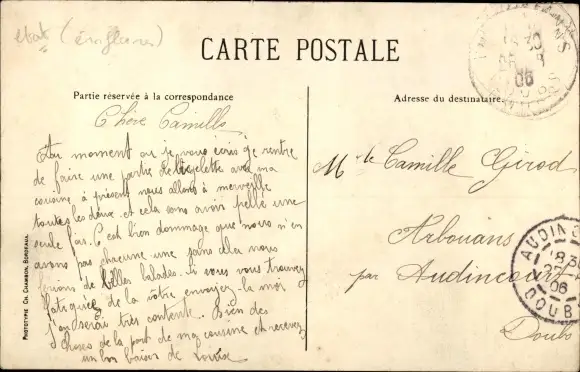 CARTE POSTALE
Partie réservée à la correspondance
Adresse du destinataire.
Chère Camille
Au moment où je vous écris je rentre
de faire une partie de bicyclette avec ma
cousine à présent nous allons à merveille
toutes les deux et cela sans avoir pellé une
seule fois. C'est bien dommage que nous n'en
avons pas chacune une sans cela nous
ferions de belles balades. Si vous vous trouvez
fatiguée de la vôtre envoyez-la moi
J'en serai très contente. Bien des
choses de la part de ma cousine et recevez
un bon baiser de Louise
Mlle Camille Girod
Arbouans
par Audincourt
Doubs
PHOTOTYPIE CH. CHAMBON, BORDEAUX.
AUDINC
27
06
DOUBS
06